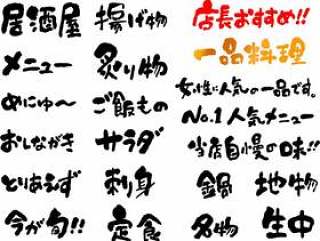 居酒屋
揚げ物
店長おすすめ!!
メニュー
炙り物
一品料理
めにゅ〜
ご飯もの
女性に人気の一品です。
おしながき
サラダ
No.1 人気メニュー
とりあえず
刺身
当店自慢の味!!
今が旬!!
定食
鍋
地物
名物
生中